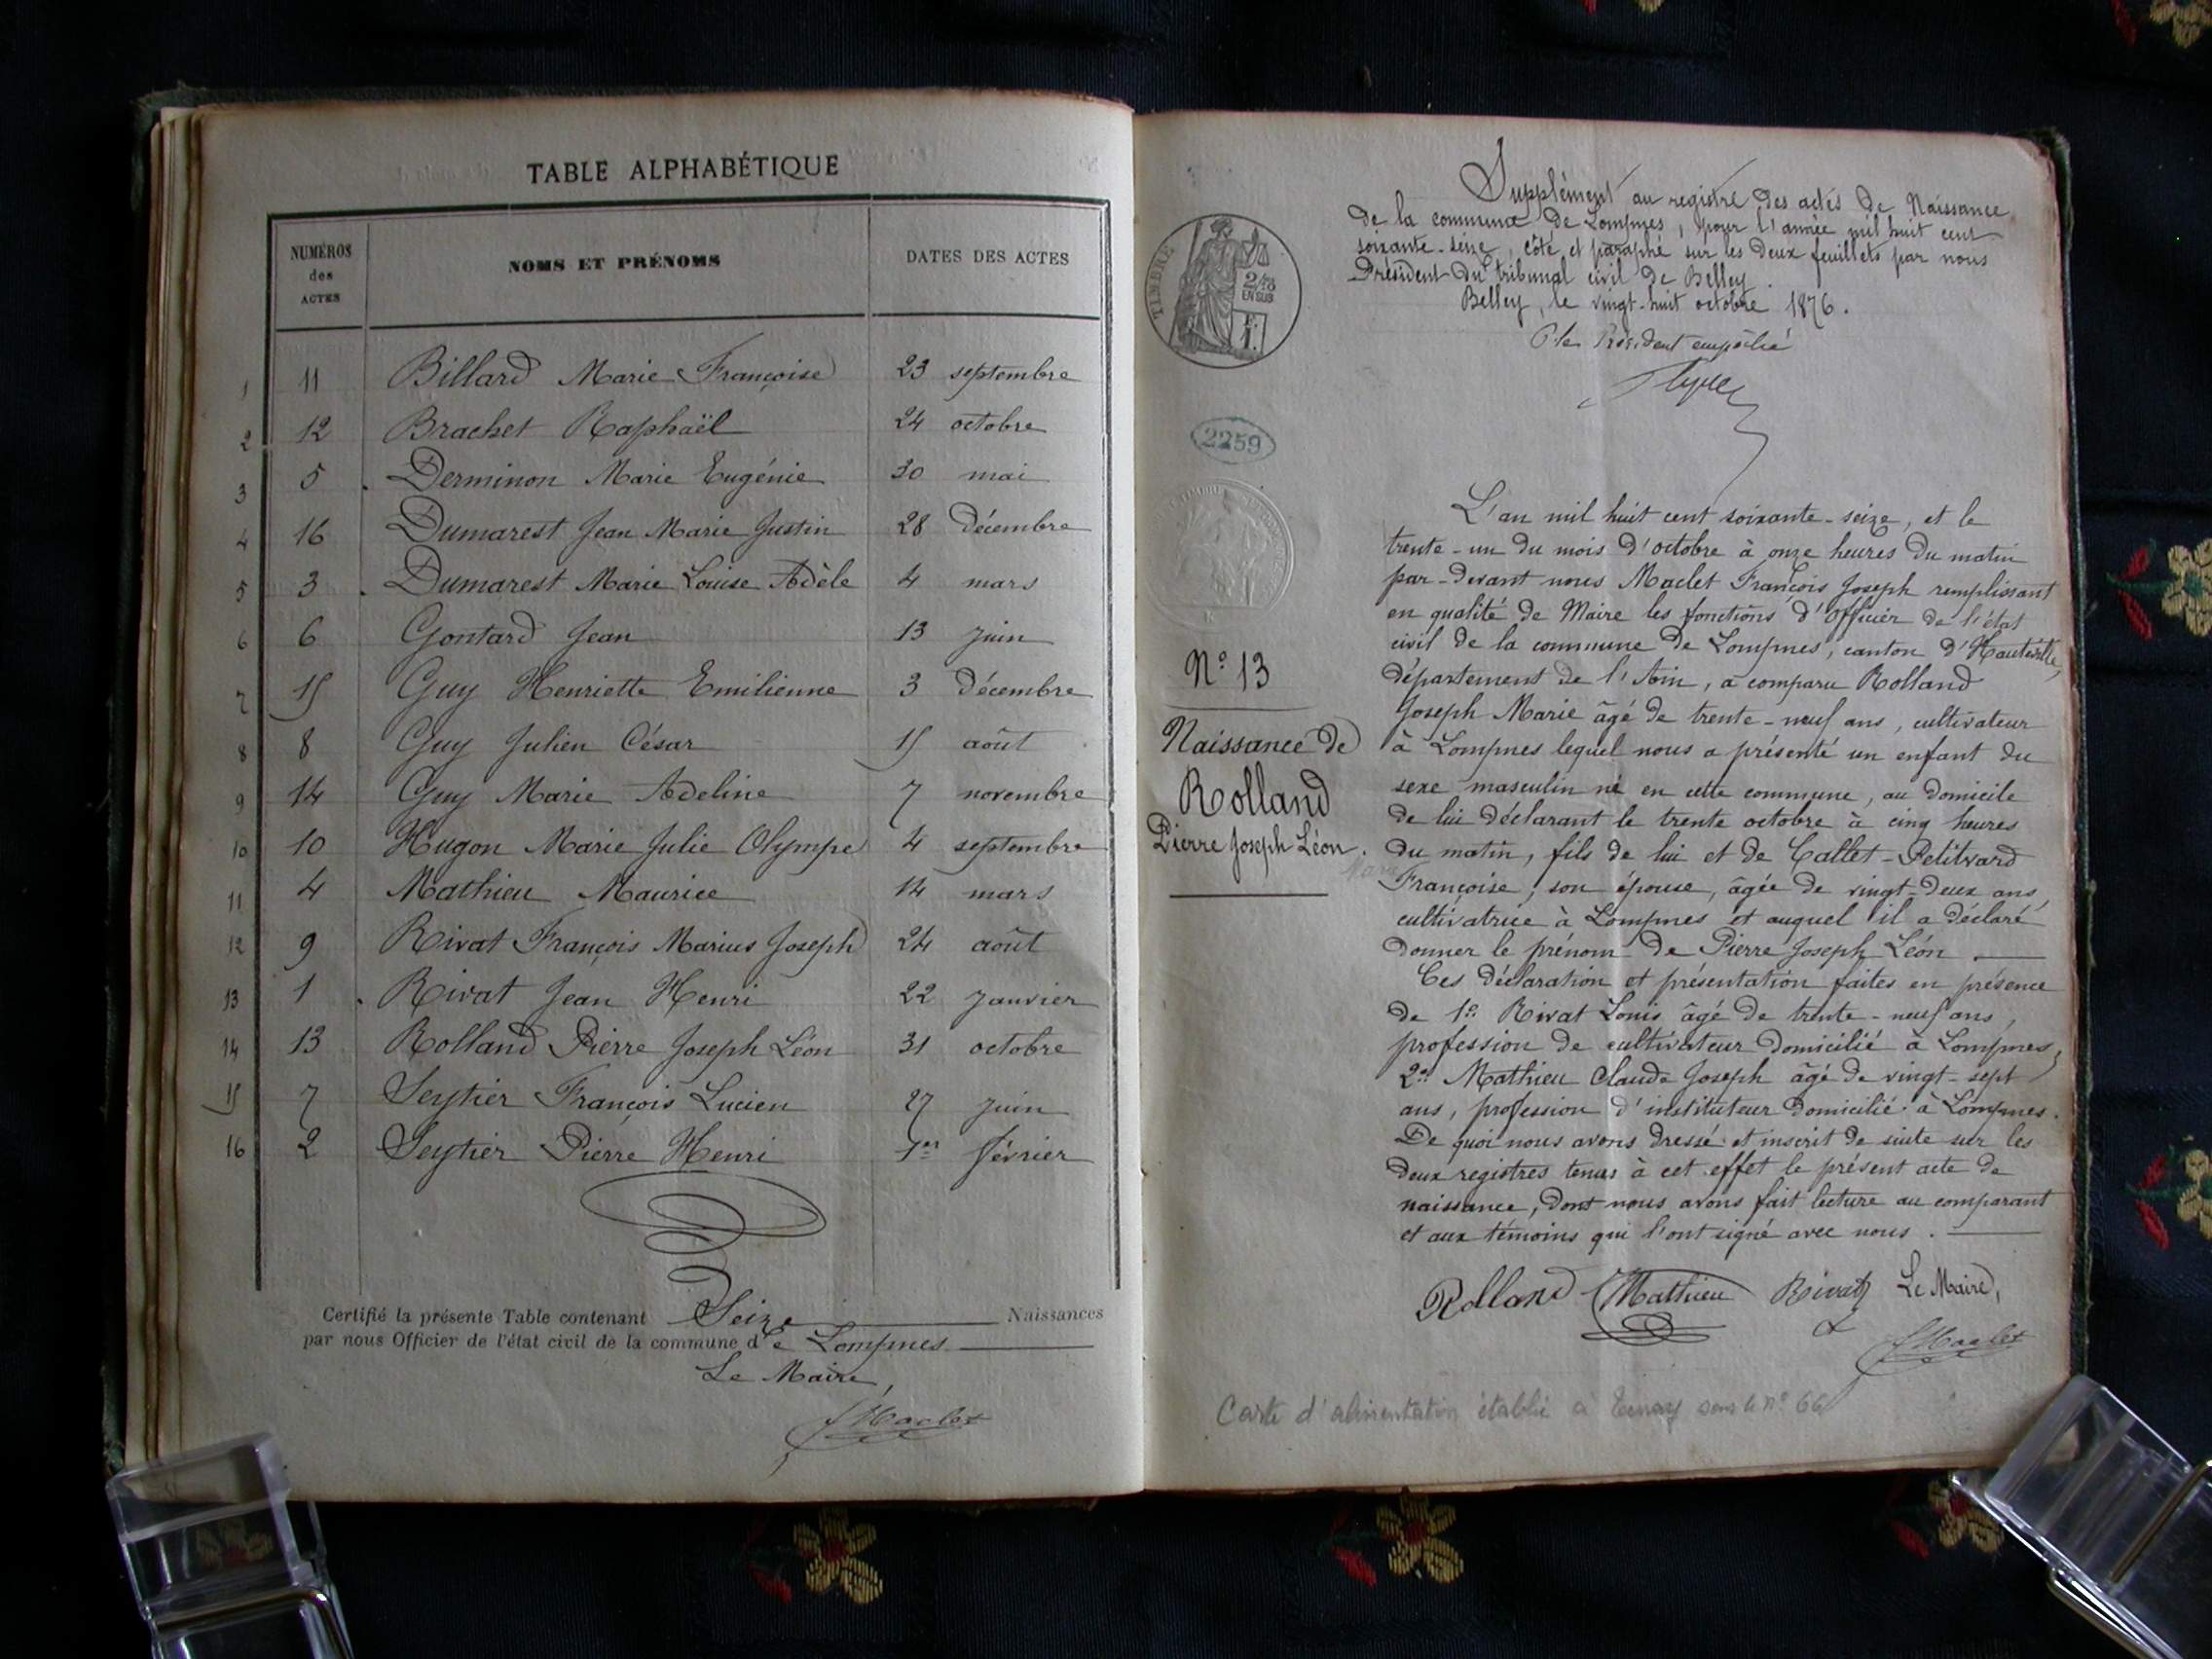 TABLE ALPHABÉTIQUE
NUMÉROS des ACTES
NOMS ET PRÉNOMS
DATES DES ACTES
1 11 Billard Marie Françoise 23 septembre
2 12 Brachet Raphaël 24 octobre
3 5 Derminon Marie Eugénie 30 mai
4 16 Dumarest Jean Marie Justin 28 décembre
5 3 Dumarest Marie Louise Adèle 4 mars
6 6 Gontard Jean 13 juin
7 15 Guy Henriette Emilienne 3 décembre
8 8 Guy Julien César 15 août
9 14 Guy Marie Adeline 7 novembre
10 10 Hugon Marie Julie Olympe 4 septembre
11 4 Mathieu Maurice 14 mars
12 9 Rivat François Marius Joseph 24 août
13 1 Rivat Jean Henri 22 janvier
14 13 Rolland Pierre Joseph Léon 31 octobre
15 7 Seytier François Lucien 27 juin
16 2 Seytier Pierre Henri 1er février
Certifié la présente Table contenant Seize Naissances
par nous Officier de l'état civil de la commune de Lompnes
Le Maire,
Maclet
Supplément au registre des actes de Naissance
de la commune de Lompnes, pour l'année mil huit cent
soixante-seize, côté et paraphé sur les deux feuillets par nous
Président du tribunal civil de Belley.
Belley, le vingt-huit octobre 1876.
P. le Président empêché
TIMBRE
2/10
EN SUS
2259
N° 13
Naissance de
Rolland
Pierre Joseph Léon.
L'an mil huit cent soixante-seize, et le
trente-un du mois d'octobre à onze heures du matin
par-devant nous Maclet François Joseph remplissant
en qualité de Maire les fonctions d'Officier de l'état
civil de la commune de Lompnes, canton d'Hauteville,
département de l'Ain, a comparu Rolland
Joseph Marie âgé de trente-neuf ans, cultivateur
à Lompnes lequel nous a présenté un enfant du
sexe masculin né en cette commune, au domicile
de lui déclarant le trente octobre à cinq heures
du matin, fils de lui et de Callet-Petitvard
Françoise, son épouse, âgée de vingt-deux ans,
cultivatrice à Lompnes et auquel il a déclaré
donner le prénom de Pierre Joseph Léon.
Ces déclaration et présentation faites en présence
de 1°. Rivat Louis âgé de trente-neuf ans,
profession de cultivateur domicilié à Lompnes,
2°. Mathieu Claude Joseph âgé de vingt-sept
ans, profession d'instituteur domicilié à Lompnes.
De quoi nous avons dressé et inscrit de suite sur les
deux registres tenus à cet effet le présent acte de
naissance, dont nous avons fait lecture au comparant
et aux témoins qui l'ont signé avec nous.
Rolland Mathieu Rivat Le Maire,
Maclet
Carte d'alimentation établie à Tenay sous le n° 66